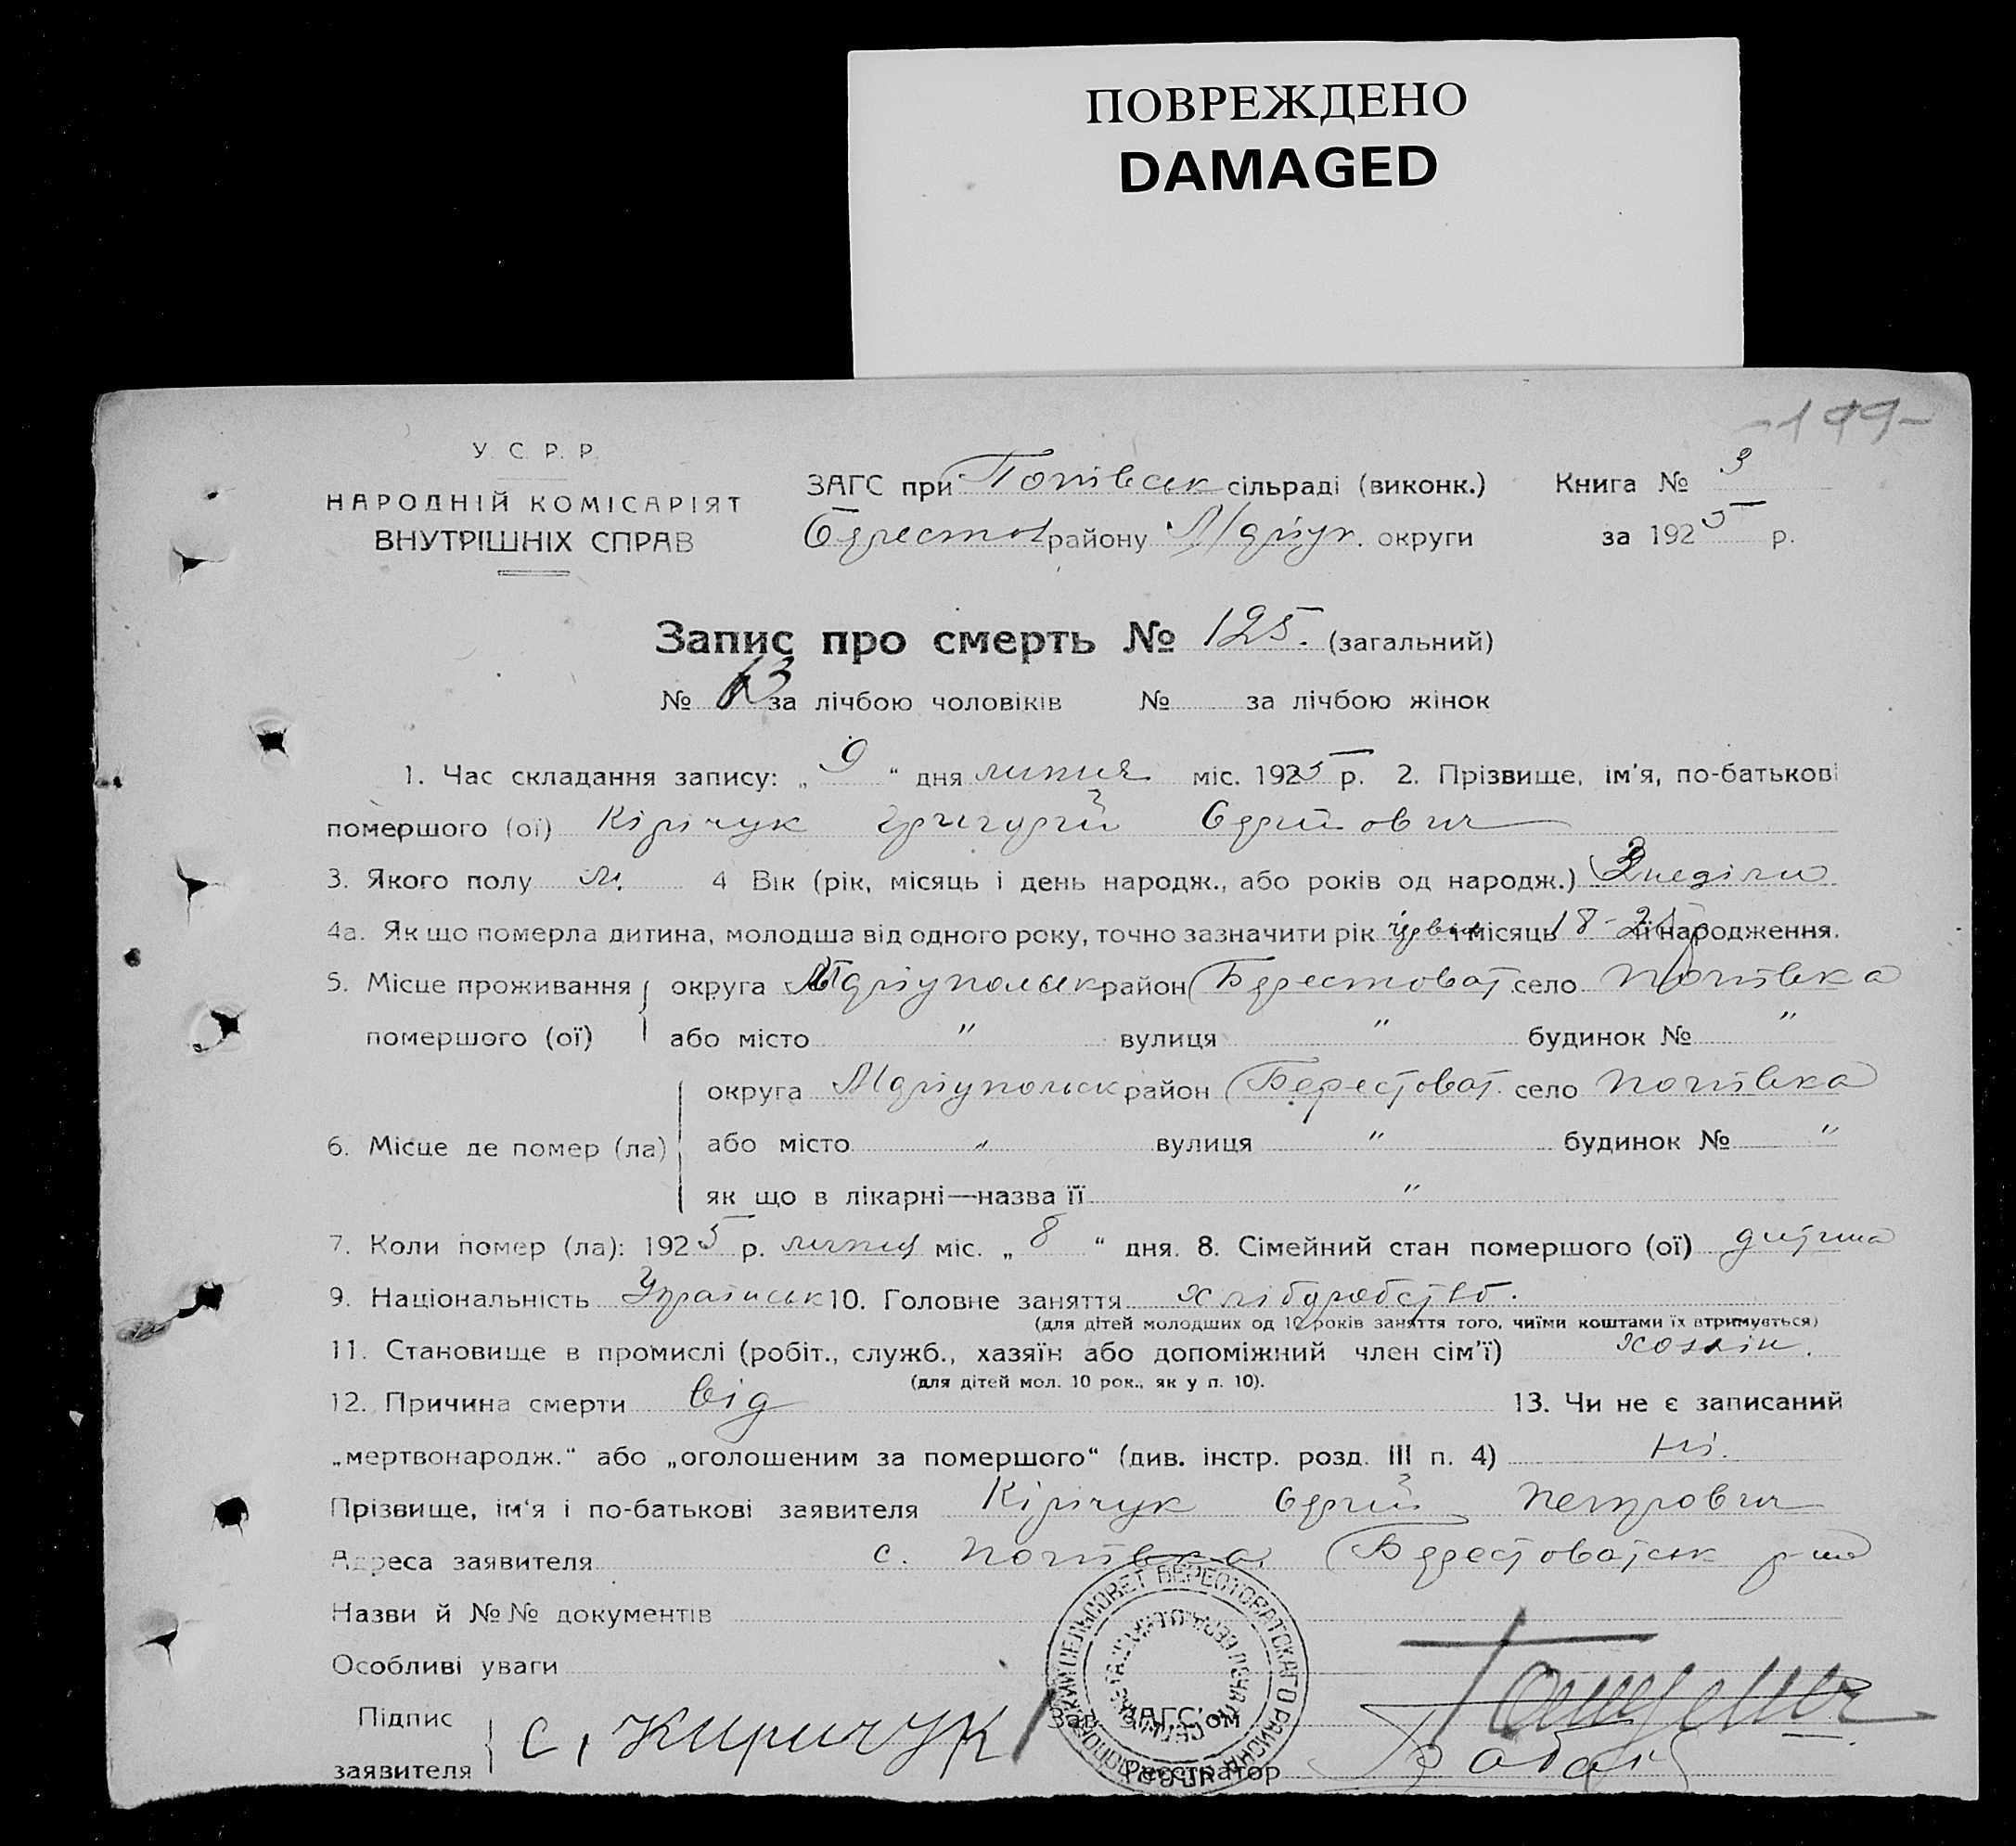 ПОВРЕЖДЕНО
DAMAGED
-199-
У. С. Р. Р.
НАРОДНІЙ КОМІСАРІЯТ
ВНУТРІШНІХ СПРАВ
ЗАГС при Потівськ сільраді (виконк.) Книга № 3
Берестов району Маріуп. округи за 1925 р.
Запис про смерть № 125. (загальний)
№ 63 за лічбою чоловіків № за лічбою жінок
1. Час складання запису: „ 9 “ дня липня міс. 1925 р. 2. Прізвище, ім’я, по-батькові
помершого (ої) Кірічук Григорій Сергійович
3. Якого полу м. 4 Вік (рік, місяць і день народж., або років од народж.) 3 неділи
4а. Як що померла дитина, молодша від одного року, точно зазначити рік червня і місяць 18 її народження.
5. Місце проживання округа Маріупольськ район Берестоват село Потівка
помершого (ої) або місто " вулиця " будинок № "
округа Маріупольськ район Берестоват. село Потівка
6. Місце де помер (ла) або місто " вулиця " будинок № "
як що в лікарні—назва її "
7. Коли помер (ла): 1925 р. липня міс. „ 8 “ дня. 8. Сімейний стан помершого (ої) дитина
9. Національність Українськ 10. Головне заняття хліборобство.
(для дітей молодших од 10 років заняття того, чиїми коштами їх втримується)
11. Становище в промислі (робіт., служб., хазяїн або допоміжний член сім’ї) хозяін.
(для дітей мол. 10 рок., як у п. 10).
12. Причина смерти від 13. Чи не є записаний
„мертвонародж.“ або „оголошеним за помершого“ (див. інстр. розд. III п. 4) ні.
Прізвище, ім‘я і по-батькові заявителя Кірічук Сергій Петрович
Адреса заявителя с. Потівка Берестоватськ р-на
Назви й №№ документів
Особливі уваги
Підпис
заявителя С. Киричук
Зав. ЗАГС’ом
Реєстратор
СЕЛЬСОВЕТ БЕРЕСТОВАТСКАГО РАЙОНА